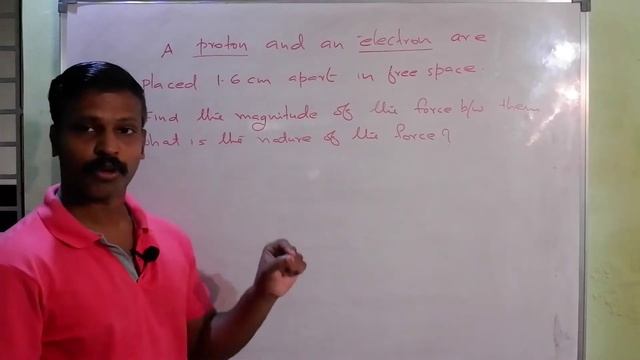 A proton and an electron are
placed 1.6 cm apart in free space.
Find the magnitude of the force b/w them
What is the nature of the force?